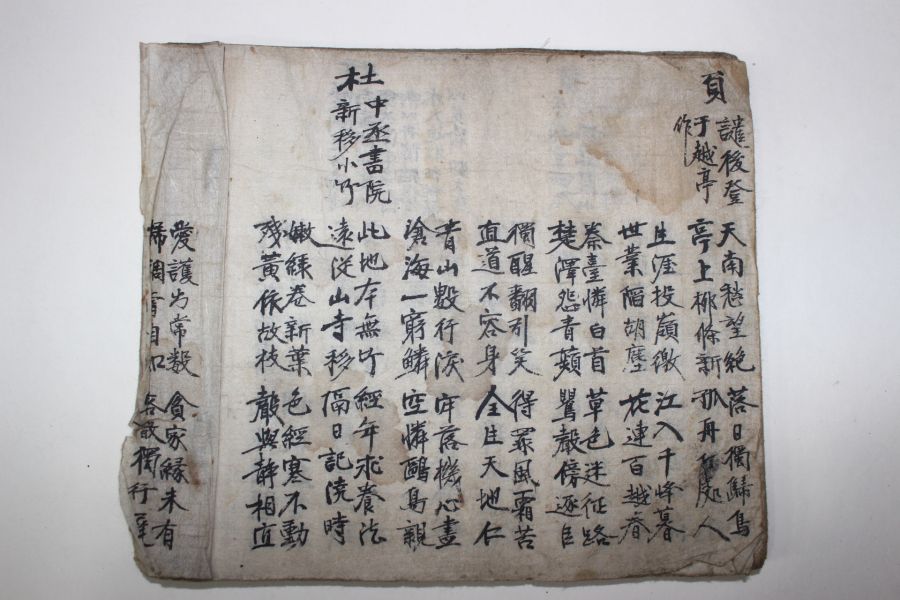 負
謫後登
于越亭
作
天南愁望絕 落日獨歸鳥
亭上柳條新 孤舟何處人
生涯投嶺徼 江入千峰暮
世業陷胡塵 花連百越春
秦臺憐白首 草色迷征路
楚澤怨青蘋 鶯聲傍逐臣
獨醒翻引笑 得罪風霜苦
直道不容身 全生天地仁
青山數行淚 牢落機心盡
滄海一窮鱗 空憐鷗鳥親
杜
中丞書院
新移小竹
此地本無竹 經年求養法
遠從山寺移 隔日記澆時
嫩綠卷新葉 色經寒不動
殘黃依故枝 聲與靜相宜
愛護為常數 貧家緣未有
稀稠看自知 客散獨行遲